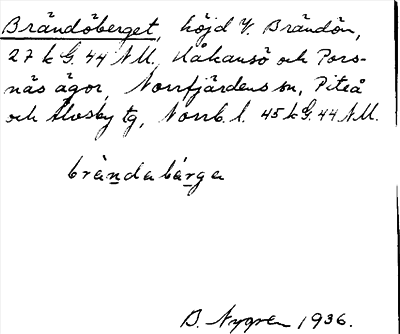 Brändöberget, höjd V. Brändön,
27 k G. 44 NU, Håkansö och Pors-
näs ägor, Norrfjärdens sn, Piteå
och Älvsby tg, Norrb. l. 45 k G. 44 NU.
brändabärga
B. Nygren 1936.